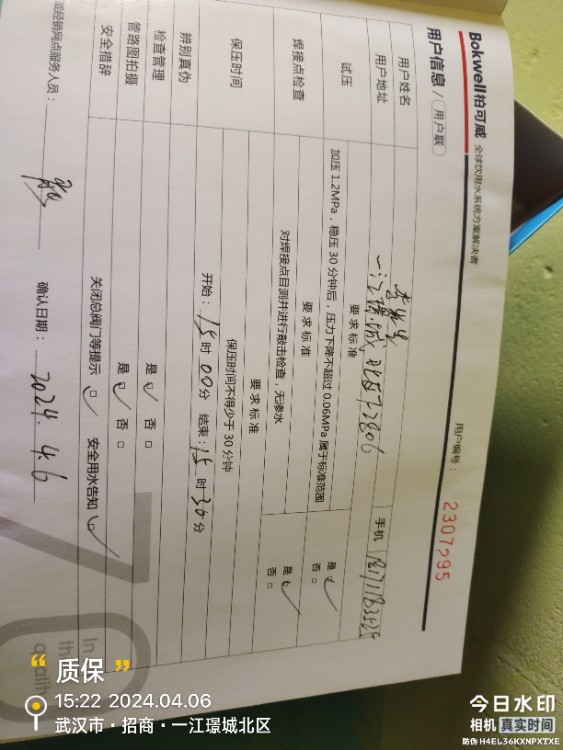 Bokwell柏可威 全球饮用水系统方案解决者
用户信息 / 用户联
用户编号：2307295
用户姓名
用户地址 一江璟城北区72806
手机
试压 要求标准
加压 1.2MPa，稳压 30 分钟后，压力下降不超过 0.06MPa 属于标准范围
是 否
焊接点检查 要求标准
对焊接点目测并进行敲击检查，无渗水
是 否
保压时间 要求标准
保压时间不得少于 30 分钟
开始：15 时 00 分 结束：15 时 30 分
辨别真伪
检查管理 是 否
管路图拍摄 是 否
安全措辞 关闭总阀门等提示 安全用水告知
或经销网点服务人员：
确认日期：2024.4.6
70
In
th
qualit
“质保”
15:22 2024.04.06
武汉市·招商·一江璟城北区
今日水印
相机 真实时间
防伪 H4EL36KXNPXTXE